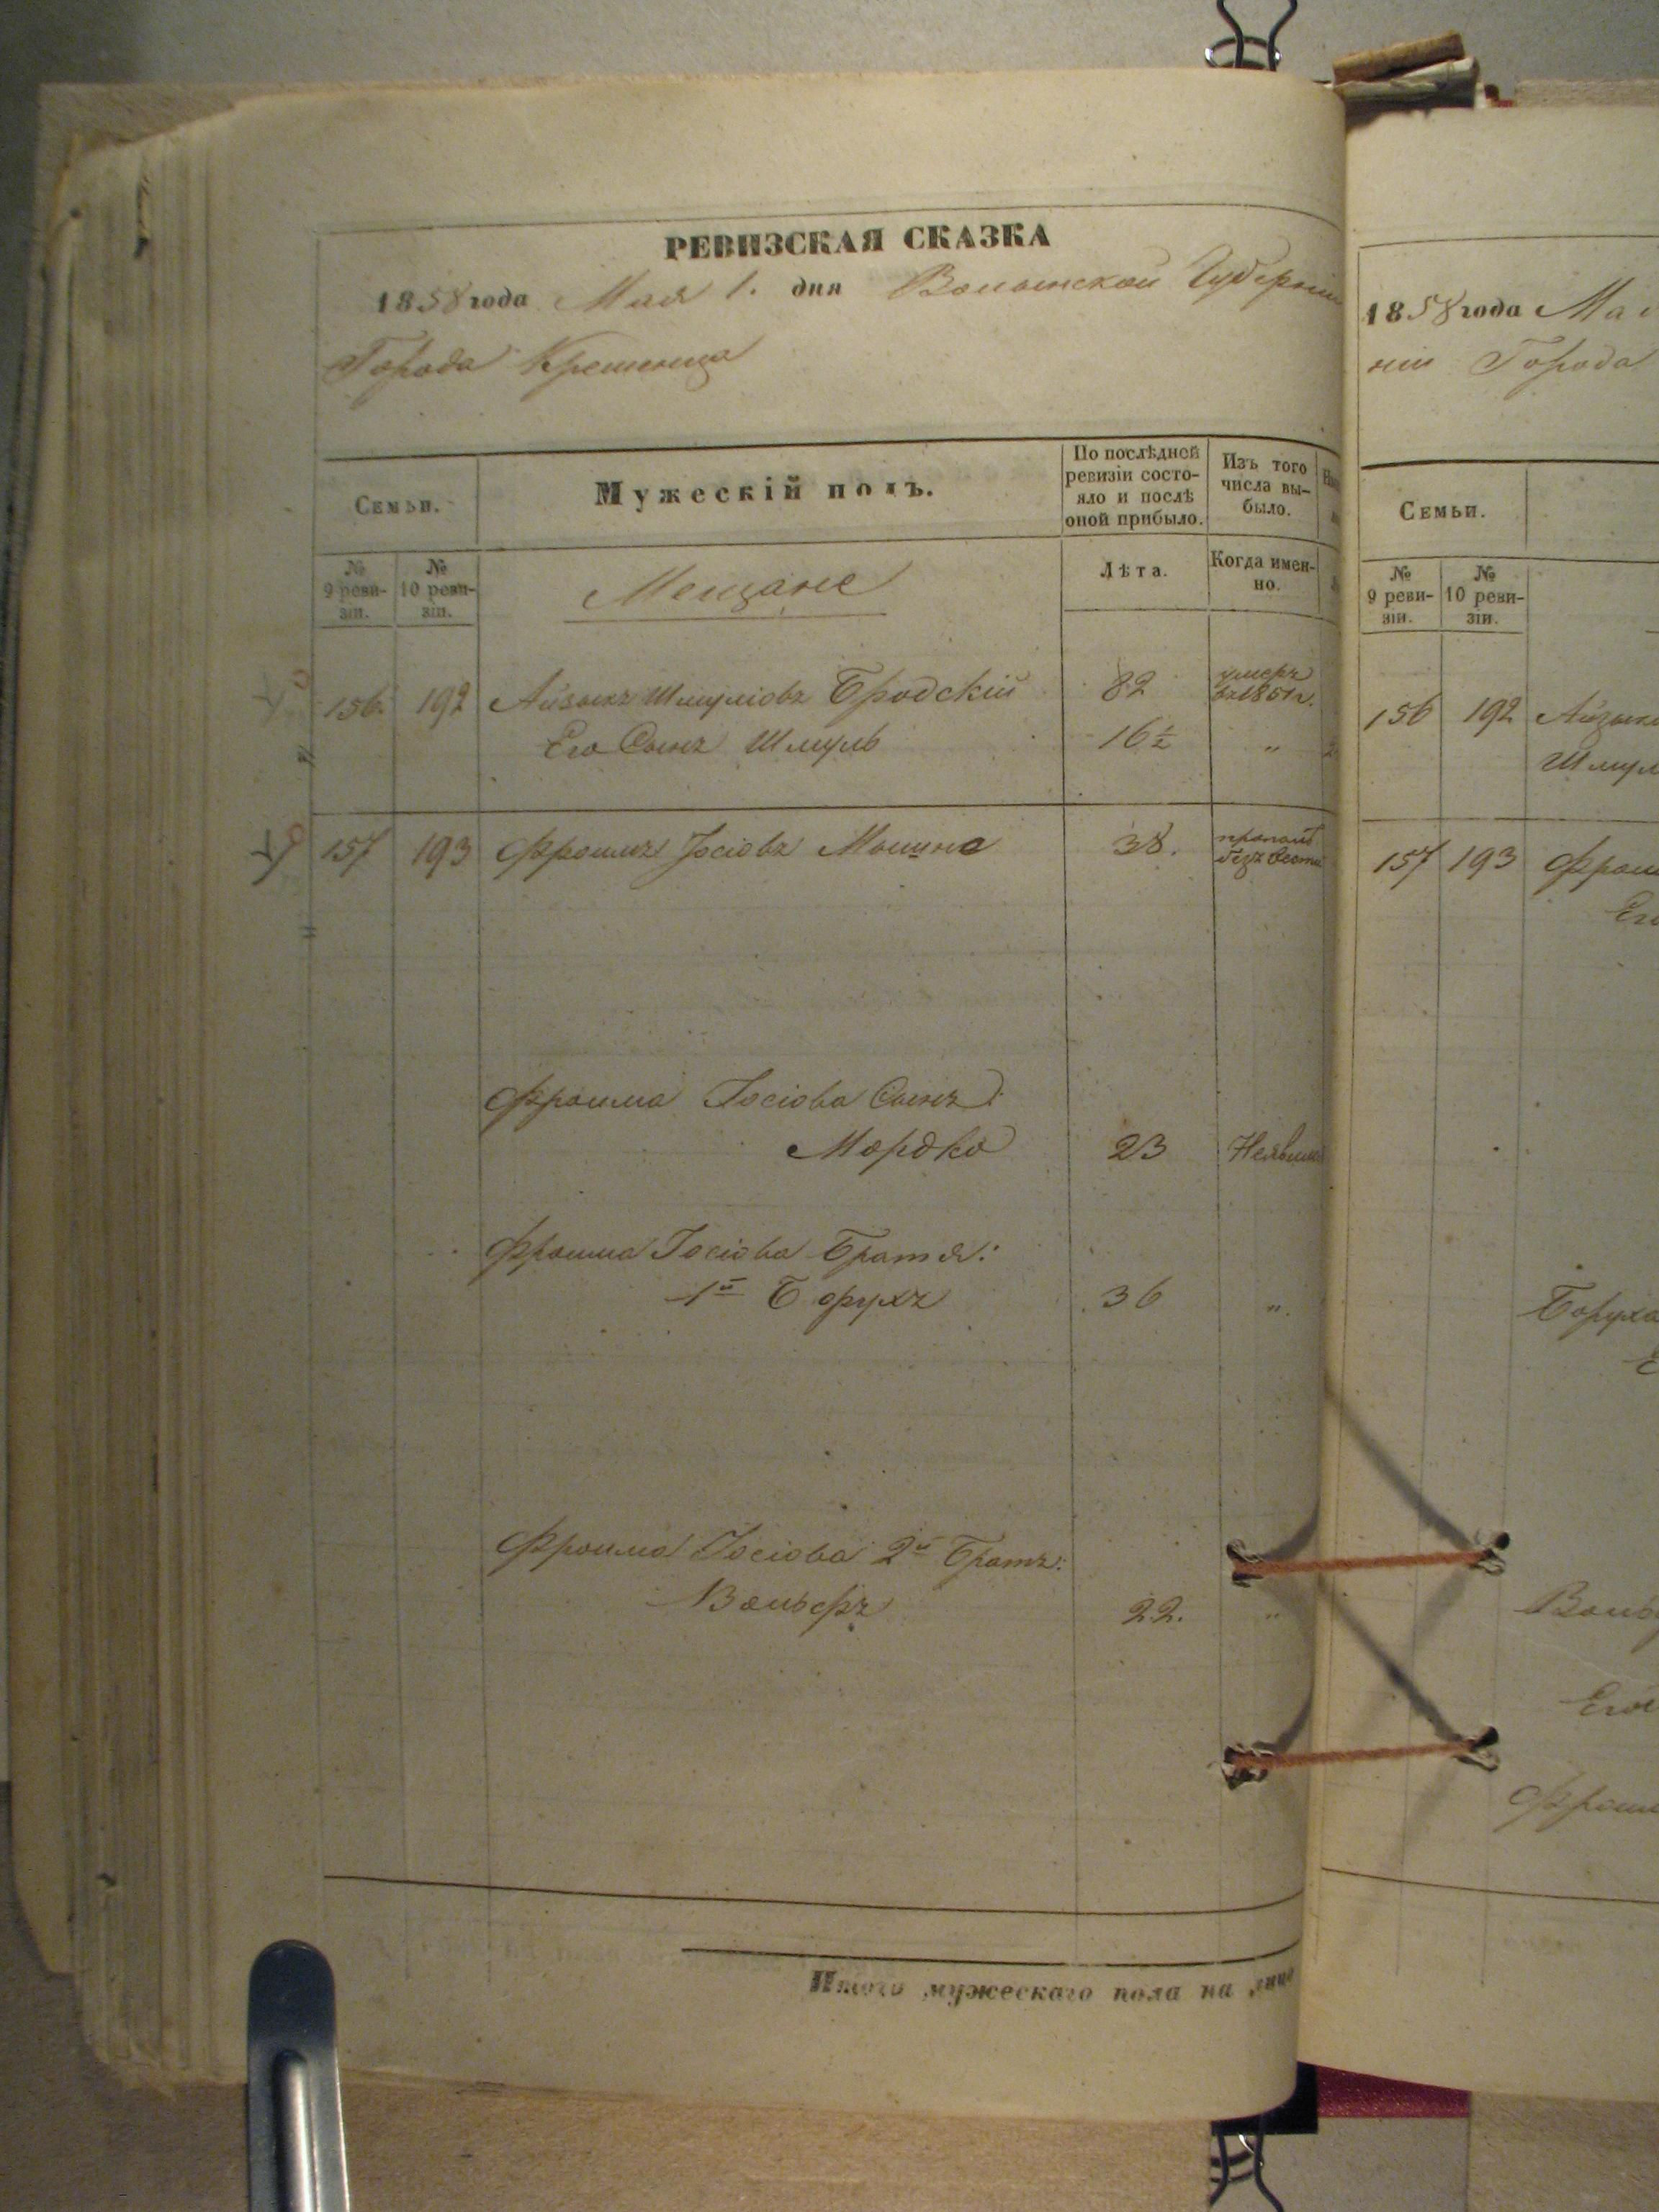 РЕВИЗСКАЯ СКАЗКА
1858 года Мая 1. дня Волынской Губерніи
Города Кременца
Семьи.
Мужескій полъ.
По послѣдней ревизіи состо-
яло и послѣ
оной прибыло.
Изъ того
числа вы-
было.
№
9 реви-
зіи.
№
10 реви-
зіи.
Мещане
Лѣта.
Когда имен-
но.
156. 192 Айзыкъ Шмуліовъ Бродскій 82 умеръ
въ 1851 г.
Его Сынъ Шмуль 16½ "
157 193 Фроимъ Іосіовъ 38. пропалъ
безъ вести
Фроима Іосіова Сынъ:
Мордко 23
Фроима Іосіова Братя:
1й Борухъ 36 ".
Фроима Іосіова 2й Братъ:
Вольфъ 22. "
Итого мужескаго пола на лицо
1858 года
ніи Города
Семьи.
№
9 реви-
зіи.
№
10 реви-
зіи.
156 192
157 193
Боруха